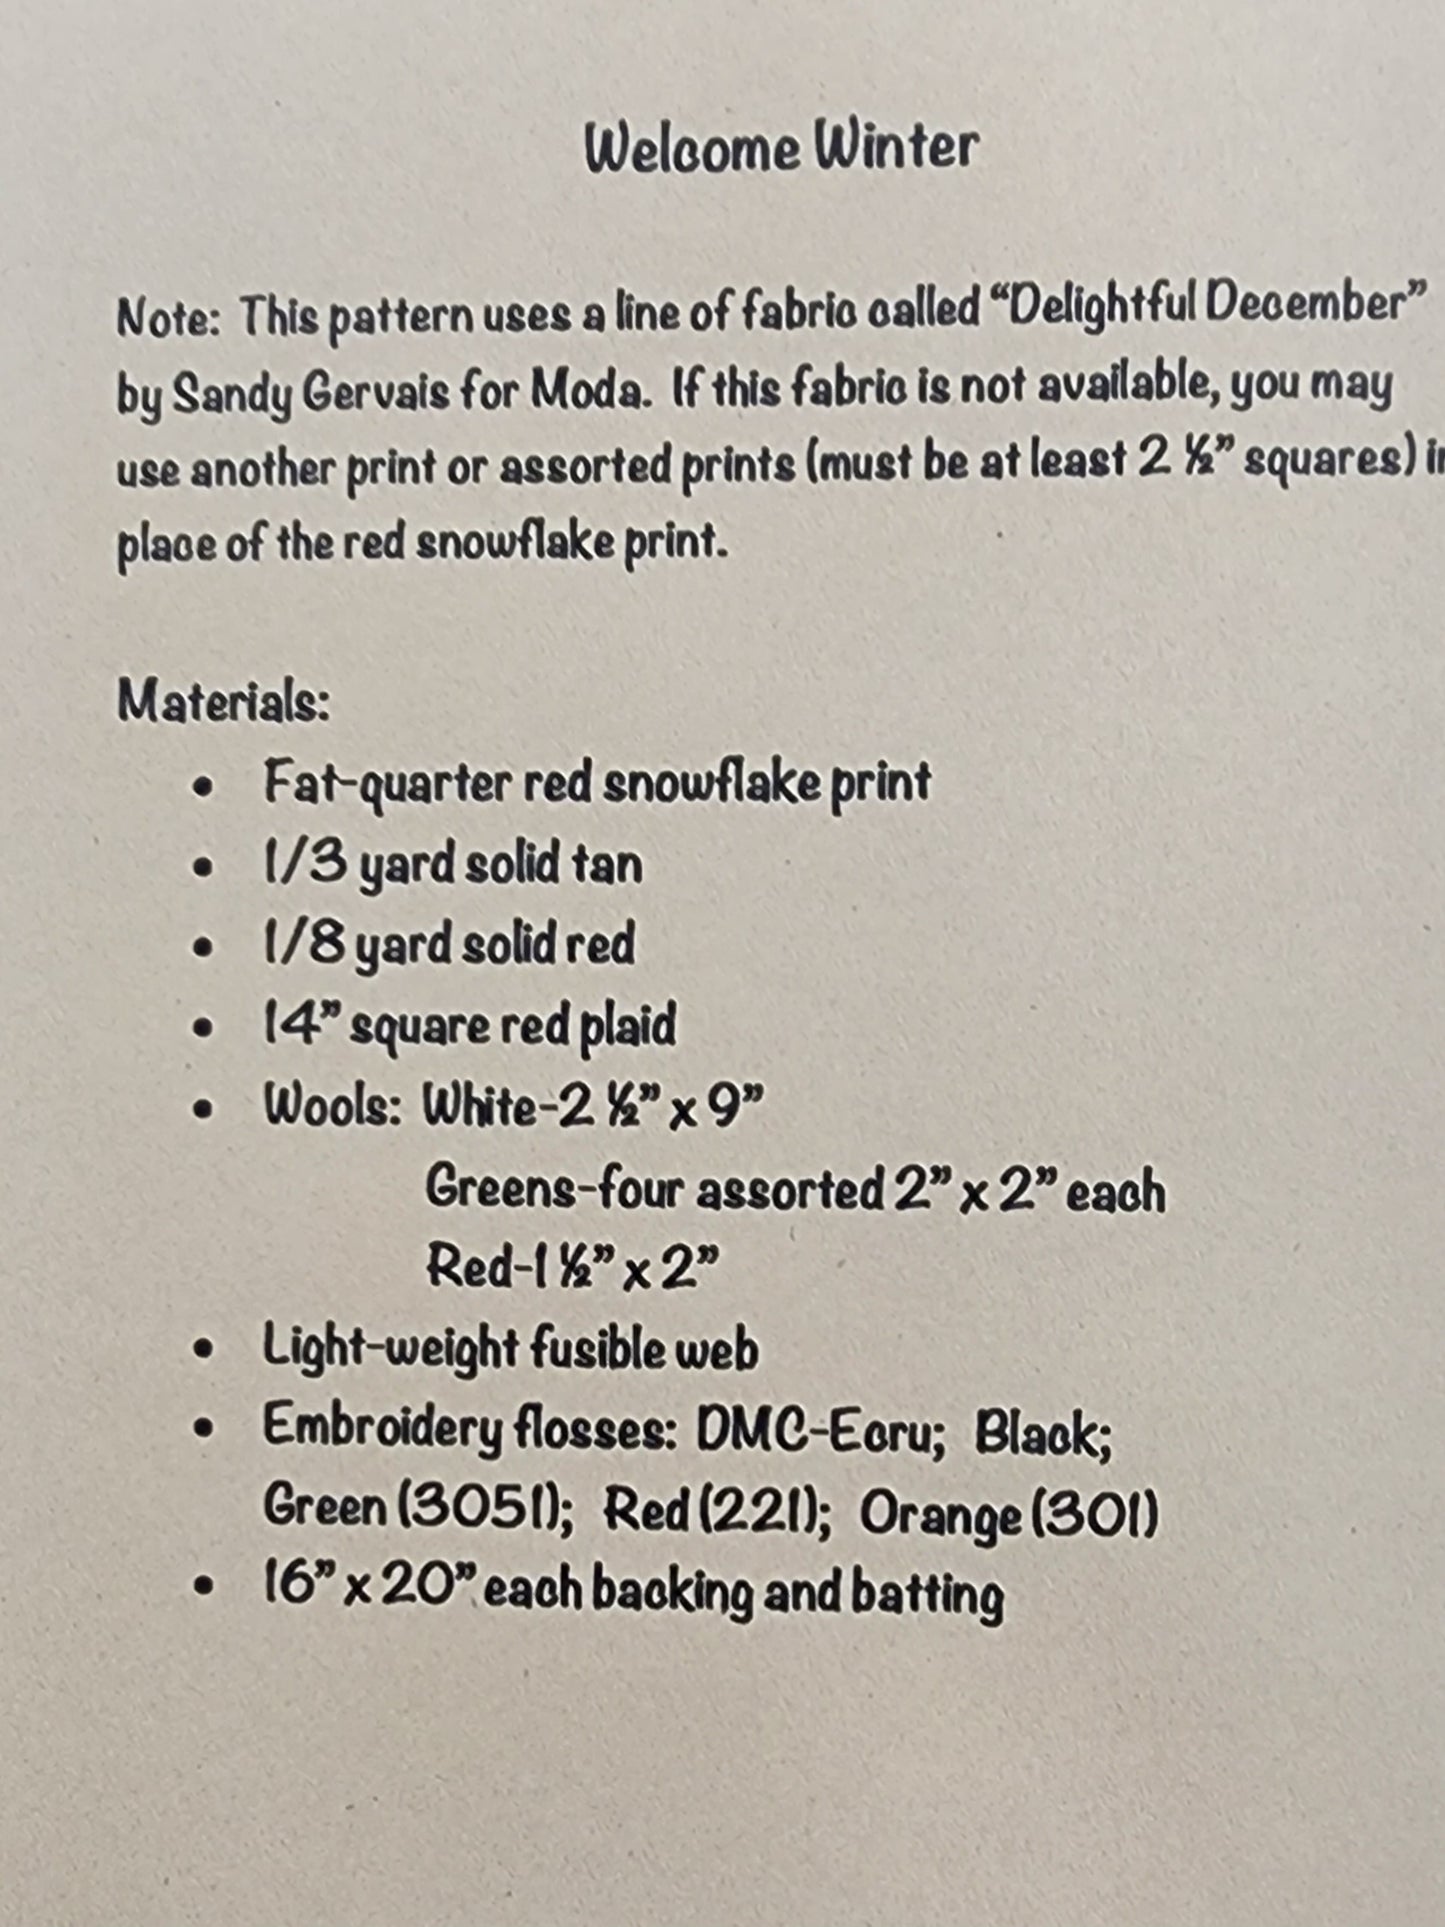 Welcome Winter
Note: This pattern uses a line of fabric called “Delightful December”
by Sandy Gervais for Moda. If this fabric is not available, you may
use another print or assorted prints (must be at least 2 ½” squares) in
place of the red snowflake print.
Materials:
• Fat-quarter red snowflake print
• 1/3 yard solid tan
• 1/8 yard solid red
• 14” square red plaid
• Wools: White-2 ½” x 9”
Greens-four assorted 2” x 2” each
Red-1 ½” x 2”
• Light-weight fusible web
• Embroidery flosses: DMC-Ecru; Black;
Green (3051); Red (221); Orange (301)
• 16” x 20” each backing and batting